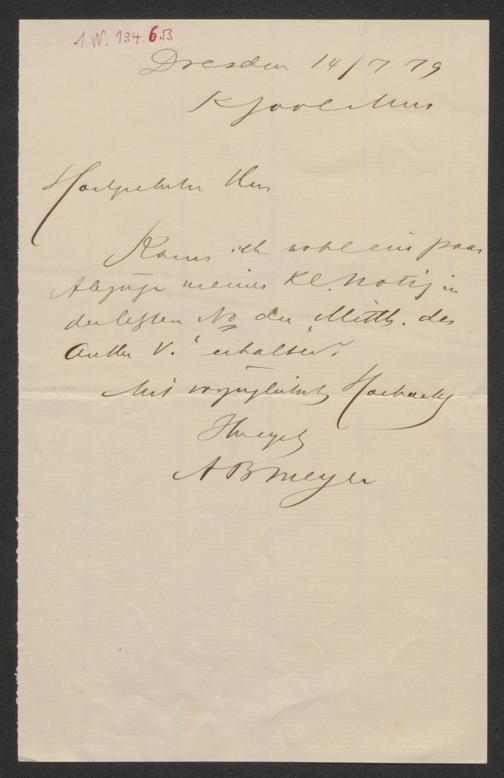 1.W. 134.6.53
Dresden 14/7 79
K Zool Mus
Hochgeehrter Herr
Kann ich wohl ein paar
Abzüge meiner kl. Notiz in
der letzten No der "Mitth. des
Anthr V." erhalten?
Mit vorzüglicher Hochachtg
A B Meyer